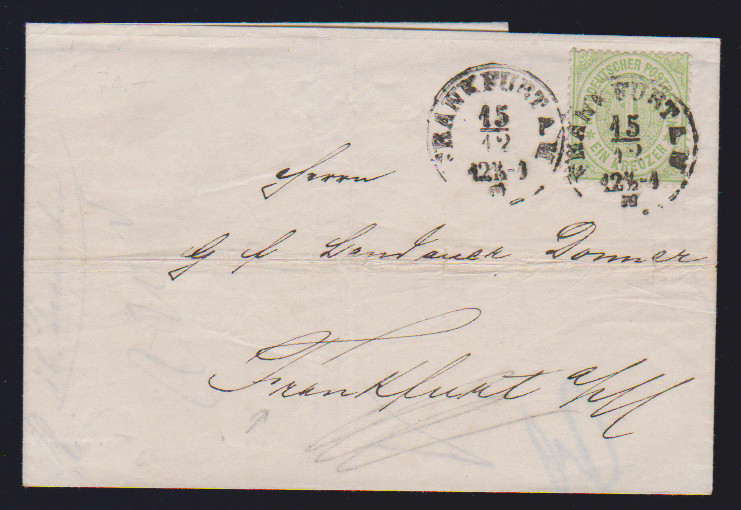 FRANKFURT A M
15
12
12½-1
N
FRANKFURT A M
15
12
12½-1
N
NORDDEUTSCHER POSTBEZIRK
1
* EIN KREUZER *
Herrn
G f Landauer Donner
Frankfurt a/M